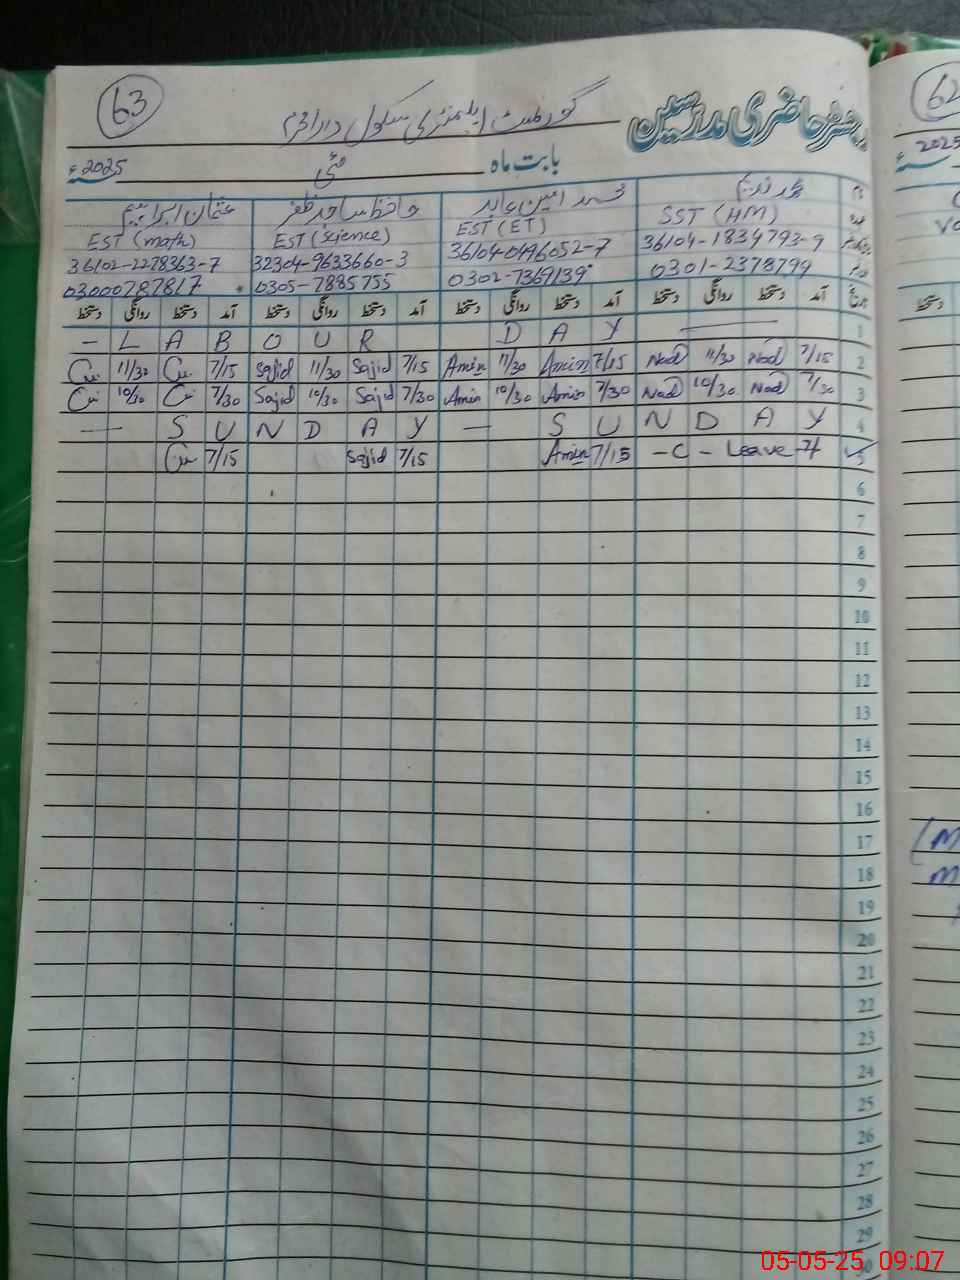 63
رجسٹر حاضری مدرسین
گورنمنٹ ایلیمنٹری سکول
بابت ماہ مئی 2025ء
محمد امین عابد حافظ ساجد ظفر عثمان ابراہیم
SST (HM) EST (ET) EST (Science) EST (math)
36104-1834793-9 36104-0496052-7 32304-9633660-3 36102-2278363-7
0301-2378799 0302-7369139 0305-7885755 03000787817
تاریخ آمد دستخط روانگی دستخط آمد دستخط روانگی دستخط آمد دستخط روانگی دستخط آمد دستخط روانگی دستخط
— L A B O U R D A Y — 1
11/30 7/15 Sajid 11/30 Sajid 7/15 Amin 11/30 Amin 7/15 Nad 11/30 Nad 7/15 2
10/30 7/30 Sajid 10/30 Sajid 7/30 Amin 10/30 Amin 7/30 Nad 10/30 Nad 7/30 3
— S U N D A Y — S U N D A Y 4
7/15 Sajid 7/15 Amin 7/15 - C - Leave - 5
6
7
8
9
10
11
12
13
14
15
16
17
18
19
20
21
22
23
24
25
26
27
28
29
30
62
2025
05-05-25 09:07